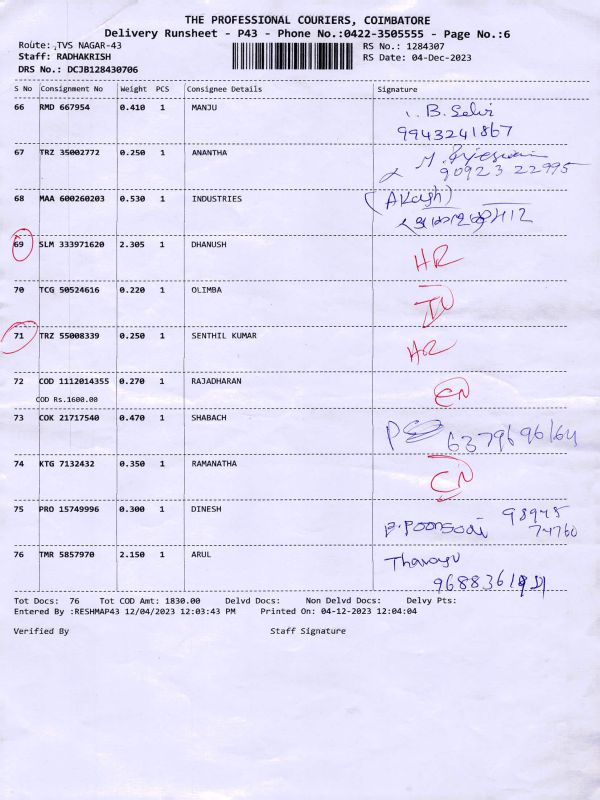 THE PROFESSIONAL COURIERS, COIMBATORE
Delivery Runsheet - P43 - Phone No.:0422-3505555 - Page No.:6
Route: TVS NAGAR-43 RS No.: 1284307
Staff: RADHAKRISH RS Date: 04-Dec-2023
DRS No.: DCJB128430706
S No Consignment No Weight PCS Consignee Details Signature
66 RMD 667954 0.410 1 MANJU B. Selvi
9943241867
67 TRZ 35002772 0.250 1 ANANTHA
90923 22995
68 MAA 600260203 0.530 1 INDUSTRIES (Akash)
69 SLM 333971620 2.305 1 DHANUSH HR
70 TCG 50524616 0.220 1 OLIMBA
71 TRZ 55008339 0.250 1 SENTHIL KUMAR HR
72 COD 1112014355 0.270 1 RAJADHARAN CN
COD Rs.1600.00
73 COK 21717540 0.470 1 SHABACH 6379696164
74 KTG 7132432 0.350 1 RAMANATHA CN
75 PRO 15749996 0.300 1 DINESH 98945
74760
76 TMR 5857970 2.150 1 ARUL
Tot Docs: 76 Tot COD Amt: 1830.00 Delvd Docs: Non Delvd Docs: Delvy Pts:
Entered By :RESHMAP43 12/04/2023 12:03:43 PM Printed On: 04-12-2023 12:04:04
Verified By Staff Signature